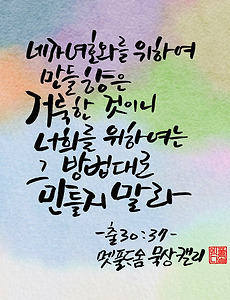 네가 여호와를 위하여
만들 향은
거룩한 것이니
너희를 위하여는
그 방법대로
만들지 말라
-출30:37-
멋풀드솜 묵상캘리